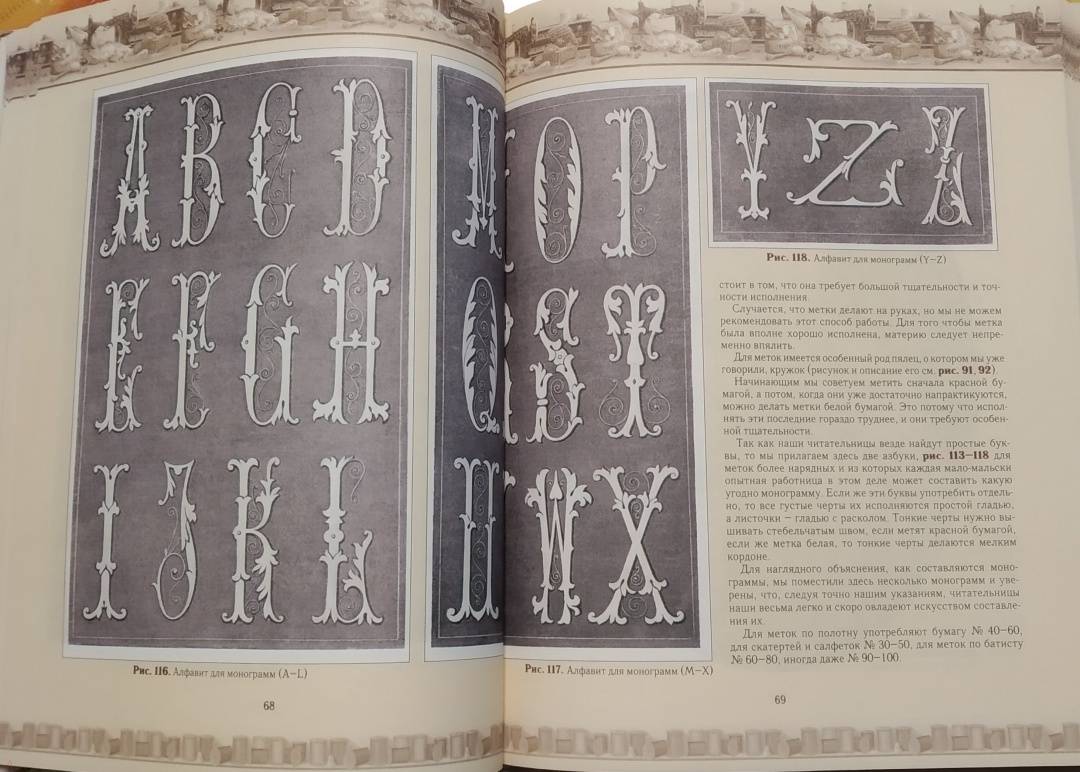 A B C D
E F G H
I J K L
Рис. 116. Алфавит для монограмм (A–L)
68
M O P
Q S T
U W X
Рис. 117. Алфавит для монограмм (M–X)
Y Z
Рис. 118. Алфавит для монограмм (Y–Z)
стоит в том, что она требует большой тщательности и точ-
ности исполнения.
Случается, что метки делают на руках, но мы не можем
рекомендовать этот способ работы. Для того чтобы метка
была вполне хорошо исполнена, материю следует непре-
менно впялить.
Для меток имеется особенный род пялец, о котором мы уже
говорили, кружок (рисунок и описание его см. рис. 91, 92).
Начинающим мы советуем метить сначала красной бу-
магой, а потом, когда они уже достаточно напрактикуются,
можно делать метки белой бумагой. Это потому что испол-
нять эти последние гораздо труднее, и они требуют особен-
ной тщательности.
Так как наши читательницы везде найдут простые бук-
вы, то мы прилагаем здесь две азбуки, рис. 113–118 для
меток более нарядных и из которых каждая мало-мальски
опытная работница в этом деле может составить какую
угодно монограмму. Если же эти буквы употребить отдель-
но, то все густые черты их исполняются простой гладью,
а листочки – гладью с расколом. Тонкие черты нужно вы-
шивать стебельчатым швом, если метят красной бумагой,
если же метка белая, то тонкие черты делаются мелким
кордоне.
Для наглядного объяснения, как составляются моно-
граммы, мы поместили здесь несколько монограмм и уве-
рены, что, следуя точно нашим указаниям, читательницы
наши весьма легко и скоро овладеют искусством составле-
ния их.
Для меток по полотну употребляют бумагу № 40–60,
для скатертей и салфеток № 30–50, для меток по батисту
№ 60–80, иногда даже № 90–100.
69